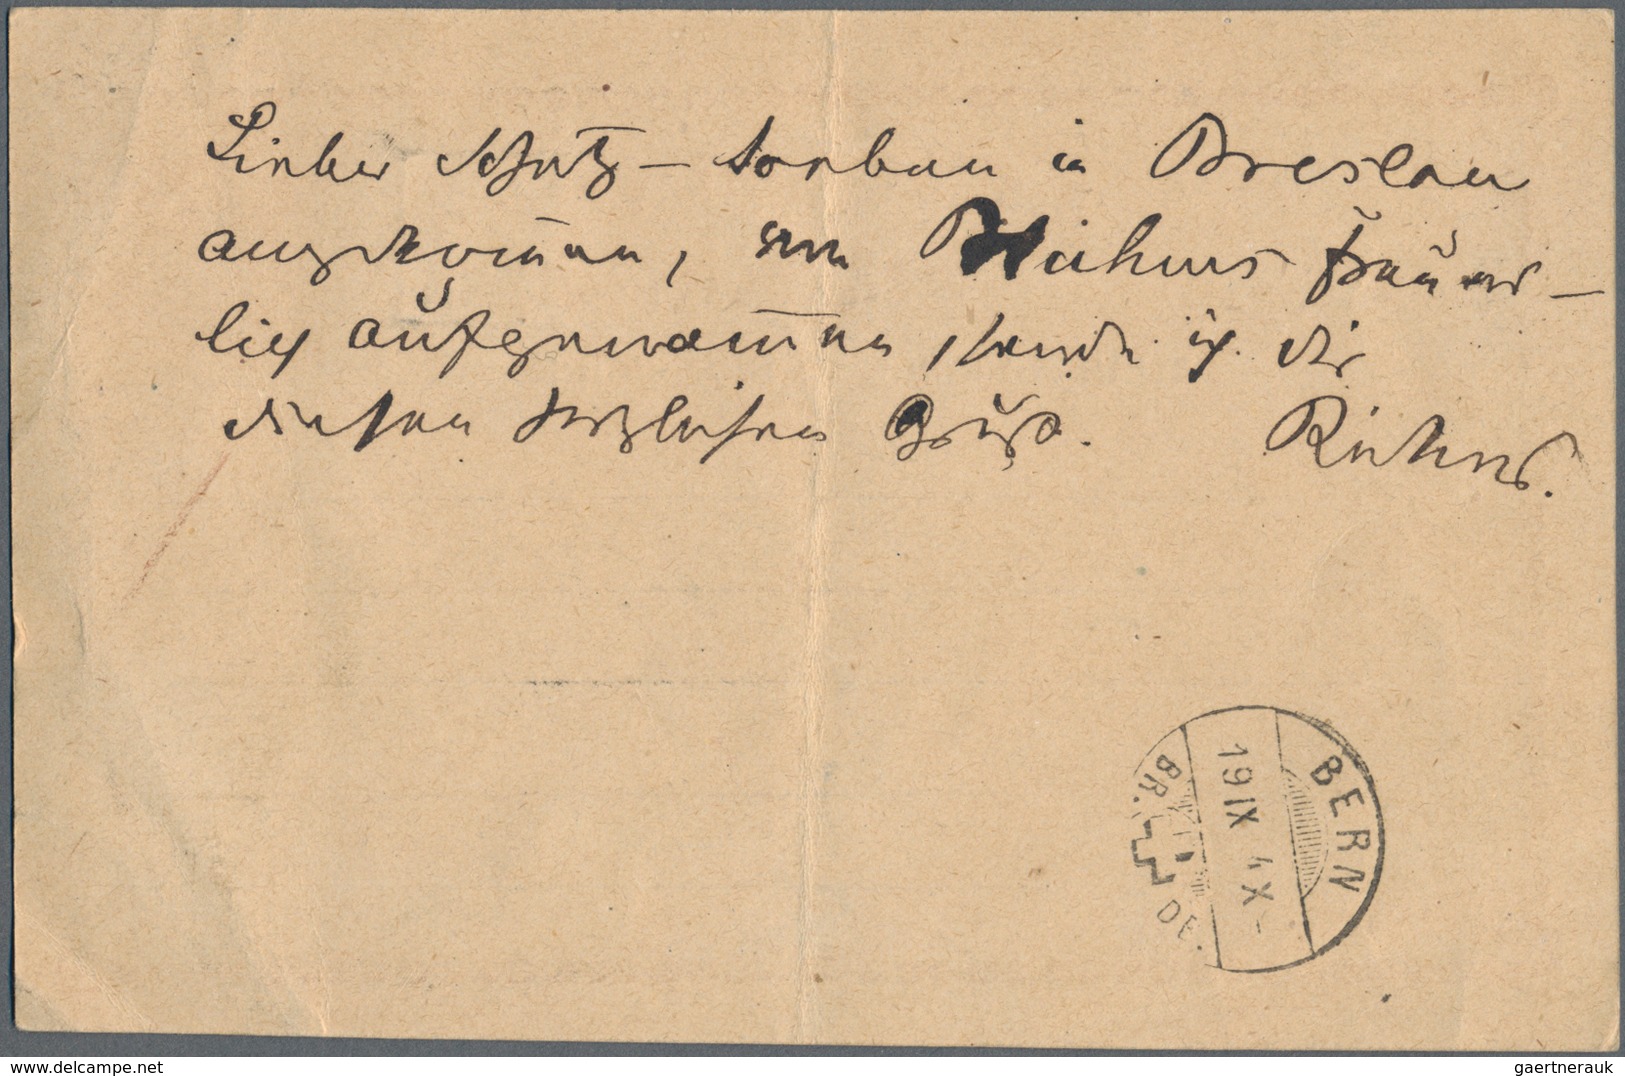 Lieber Schatz – soeben in Breslau
angekommen, von
lich aufgenommen sende ich dir
diesen herzlichen Gruß.
BERN
19 IX 4 X-
BR. DE.
www.delcampe.net
gaertnerauk